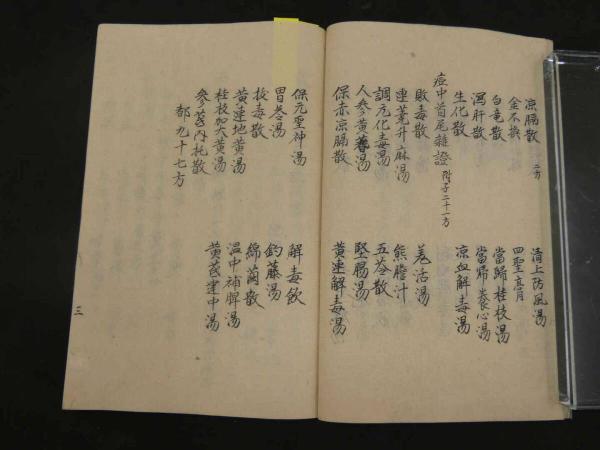 涼膈散 二方 清上防風湯
金不換 四聖膏
白竜散 當歸桂枝湯
瀉肝散 當歸養心湯
生化散 涼血解毒湯
痘中首尾雜證 附子二十一方
敗毒散 羌活湯
連翹升麻湯 熊膽汁
調元化毒湯 五苓散
人参黄芩湯 堅腸湯
保赤涼膈散 黄連解毒湯
保元聖神湯 解毒飲
胃苓湯 釣藤湯
抜毒散 綿繭散
黄連地黄湯 温中補脾湯
桂枝加大黄湯 黄芪建中湯
参芪内托散
都九十七方
三